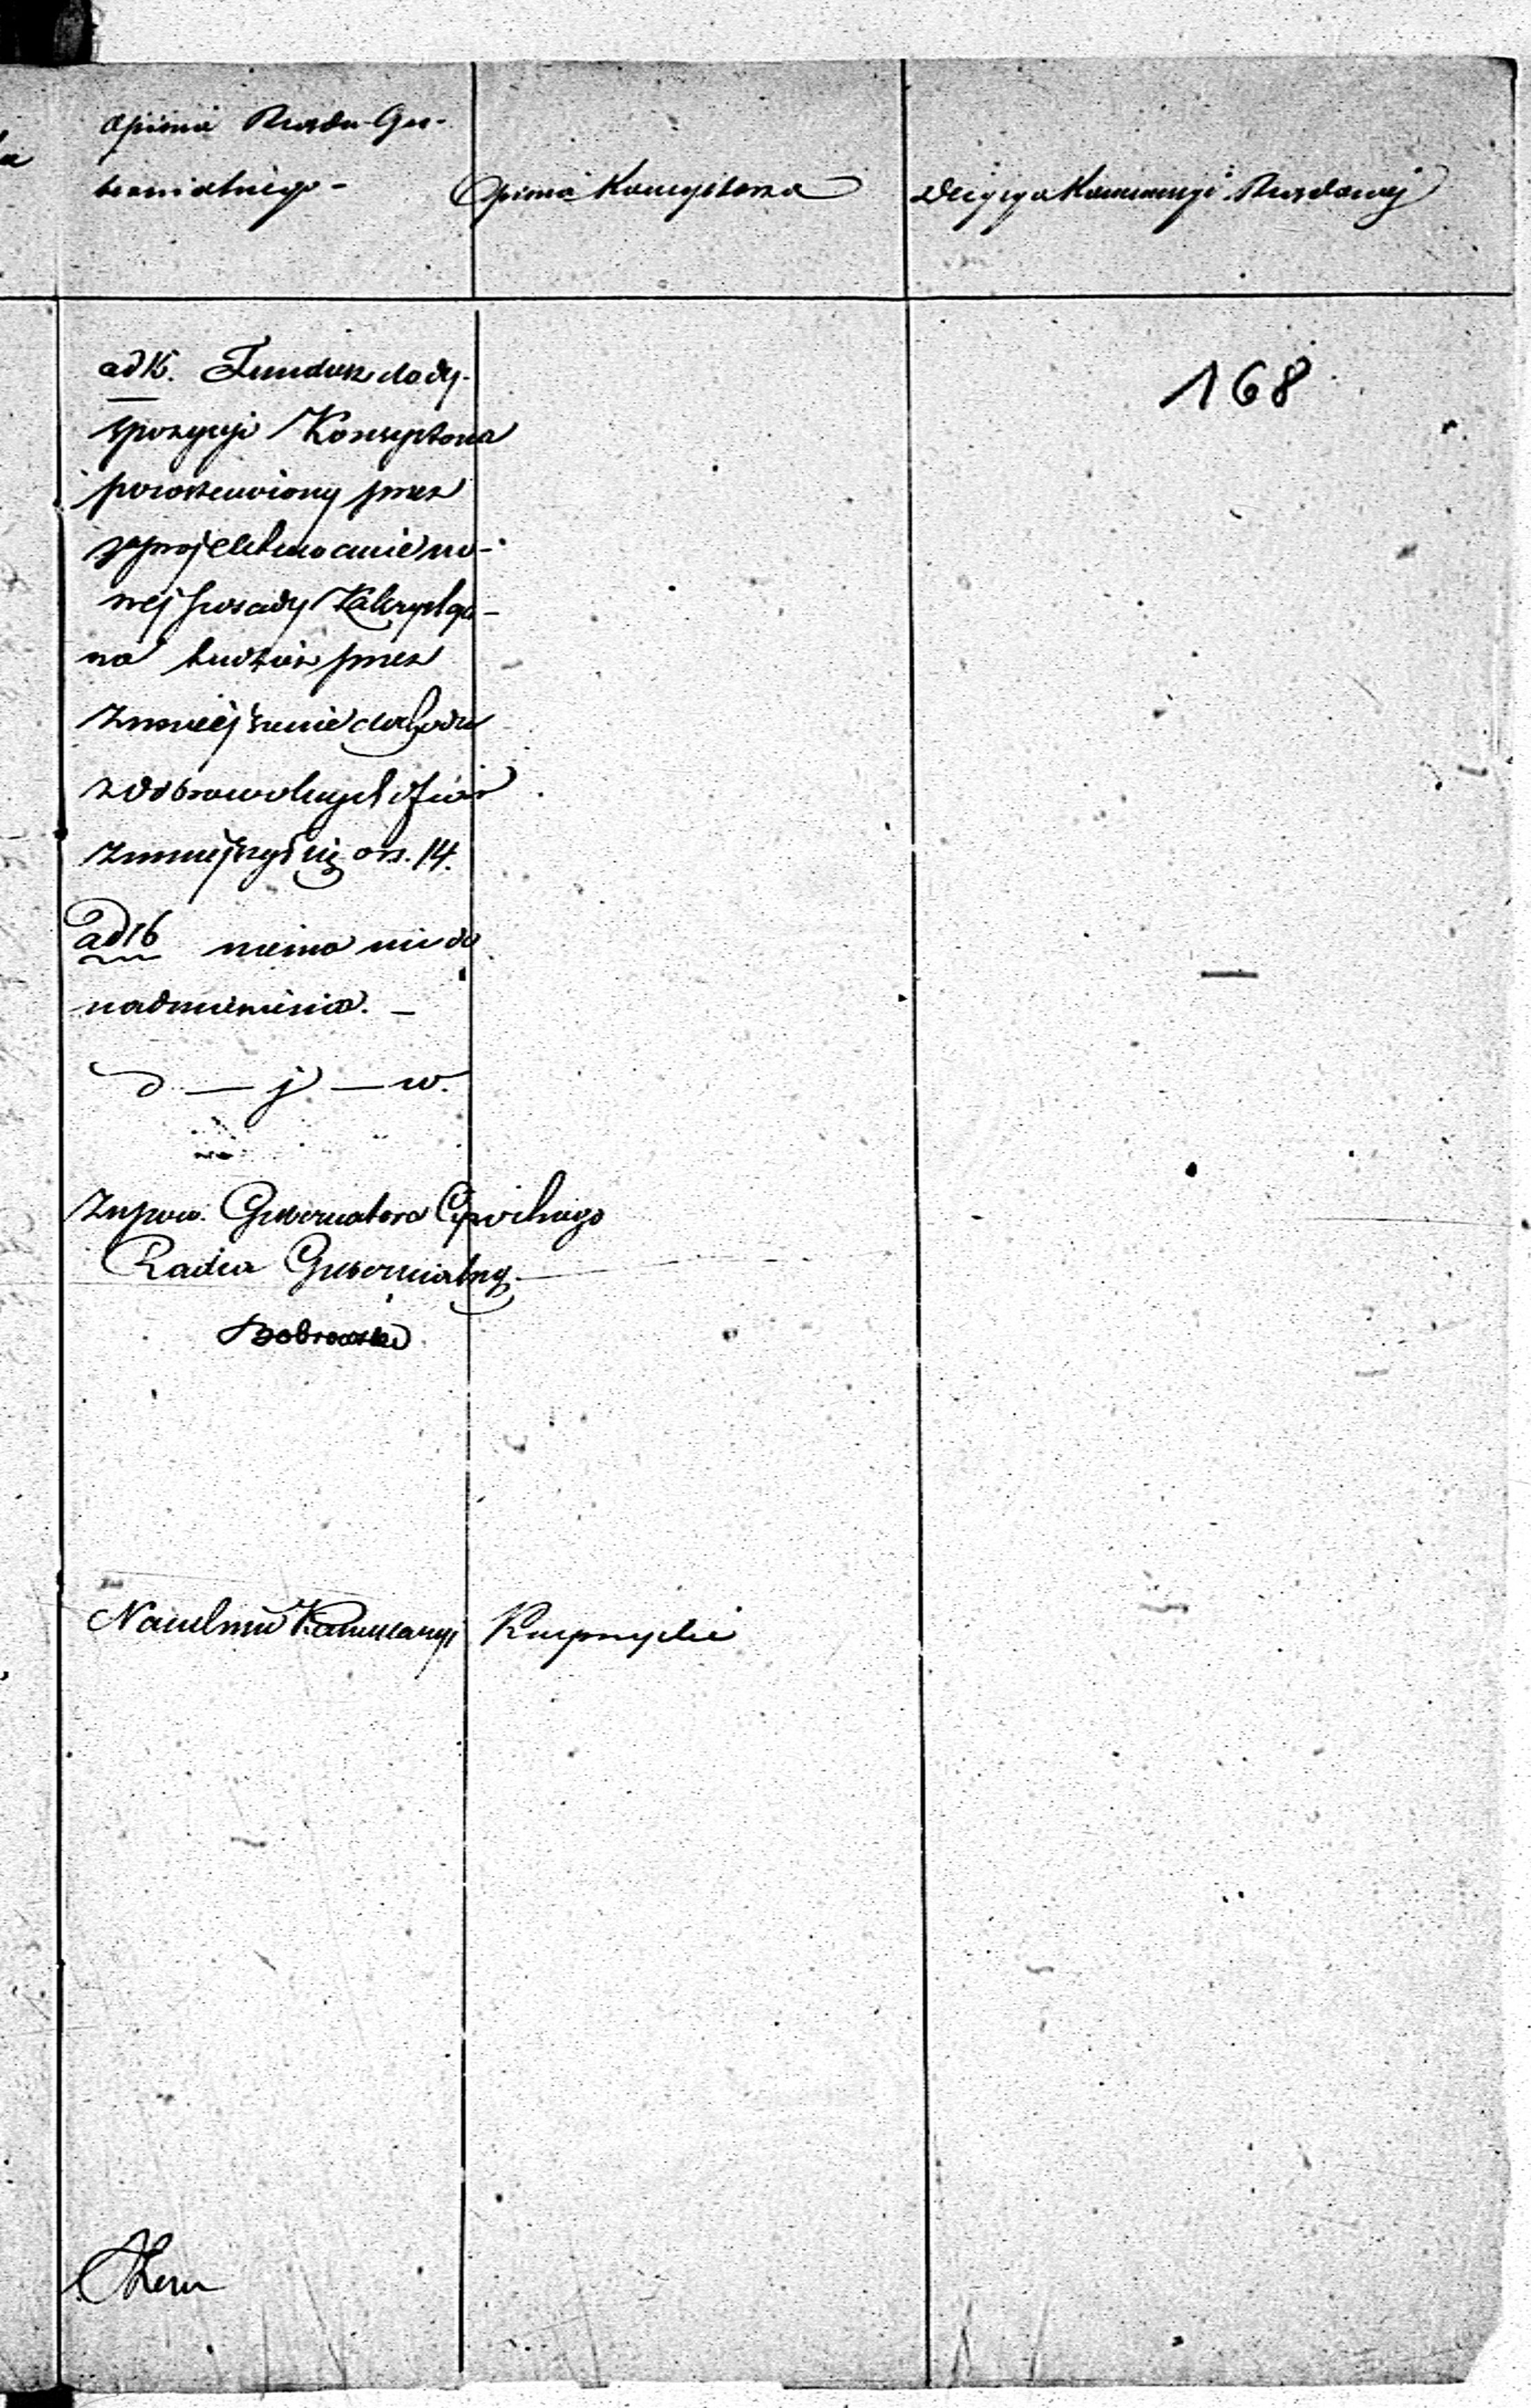 Opinia Rządu Gu-
bernialnego -
Opinia Konsystorza
Decyzya Kommissyi Rządowej
168
ad 15. Fundusz do dy-
spozycji Konsystorza
pozostawiony przez
zaprojektowanie no-
wej posady Katechety
na tudzież przez
zmniejszenie dochodu
z dobrowolnych ofiar
zmniejszył się o rs. 14.
ad 16 niema nic do
nadmienienia. -
d — j — w.
Zup. Gubernatora Cywilnego
Radca Gubernialny
Dobrowolski
Naczelnik Kancellaryi